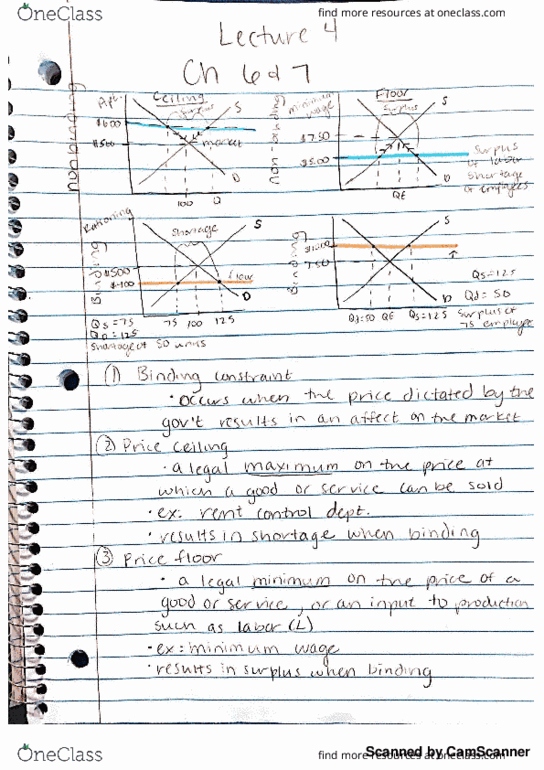 OneClass
find more resources at oneclass.com
Lecture 4
Ch 6 & 7
Nonbinding
Apt.
Ceiling
surplus
$600
$500
market
S
D
100 Q
Non-binding
minimum wage
Floor
Surplus
S
$7.50
$5.00
D
QE
Surplus
of labor
shortage
of employees
Rationing
Binding
Shortage
S
$500
$400
D
75 100 125
Qs=75
QD=125
Shortage of 50 units
Binding
S
7.50
D
Qd=50 QE Qs=125
Qs=125
Qd=50
Surplus of
75 employee
(1) Binding constraint
• occurs when the price dictated by the
gov't results in an affect on the market
(2) Price ceiling
• a legal maximum on the price at
which a good or service can be sold
• ex: rent control dept.
• results in shortage when binding
(3) Price floor
• a legal minimum on the price of a
good or service, or an input to production
such as labor (L)
• ex: minimum wage
• results in surplus when binding
OneClass
find more resources at oneclass.com
Scanned by CamScanner